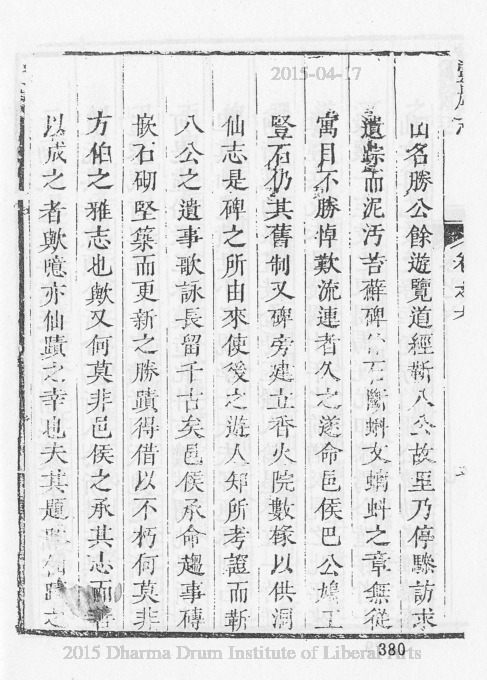 2015-04-17
山名勝公餘遊覽道經靳八公故里乃停驂訪求
遺踪而泥汚苔蘚碑斷蝌文蝌之章無從
寓目不勝悼歎流連者久之遂命邑侯巴公鳩工
豎石仍其舊制又碑旁建立香火院數椽以供洞
仙志是碑之所由來使後之遊人知所考證而靳
八公之遺事歌詠長留千古矣邑侯承命趨事磚
嵌石砌堅築而更新之勝蹟得借以不朽何莫非
方伯之雅志也歟又何莫非邑侯之承其志而
以成之者歟噫亦仙蹟之幸也夫其題曰仙蹟之
卷之九
380
2015 Dharma Drum Institute of Liberal Arts